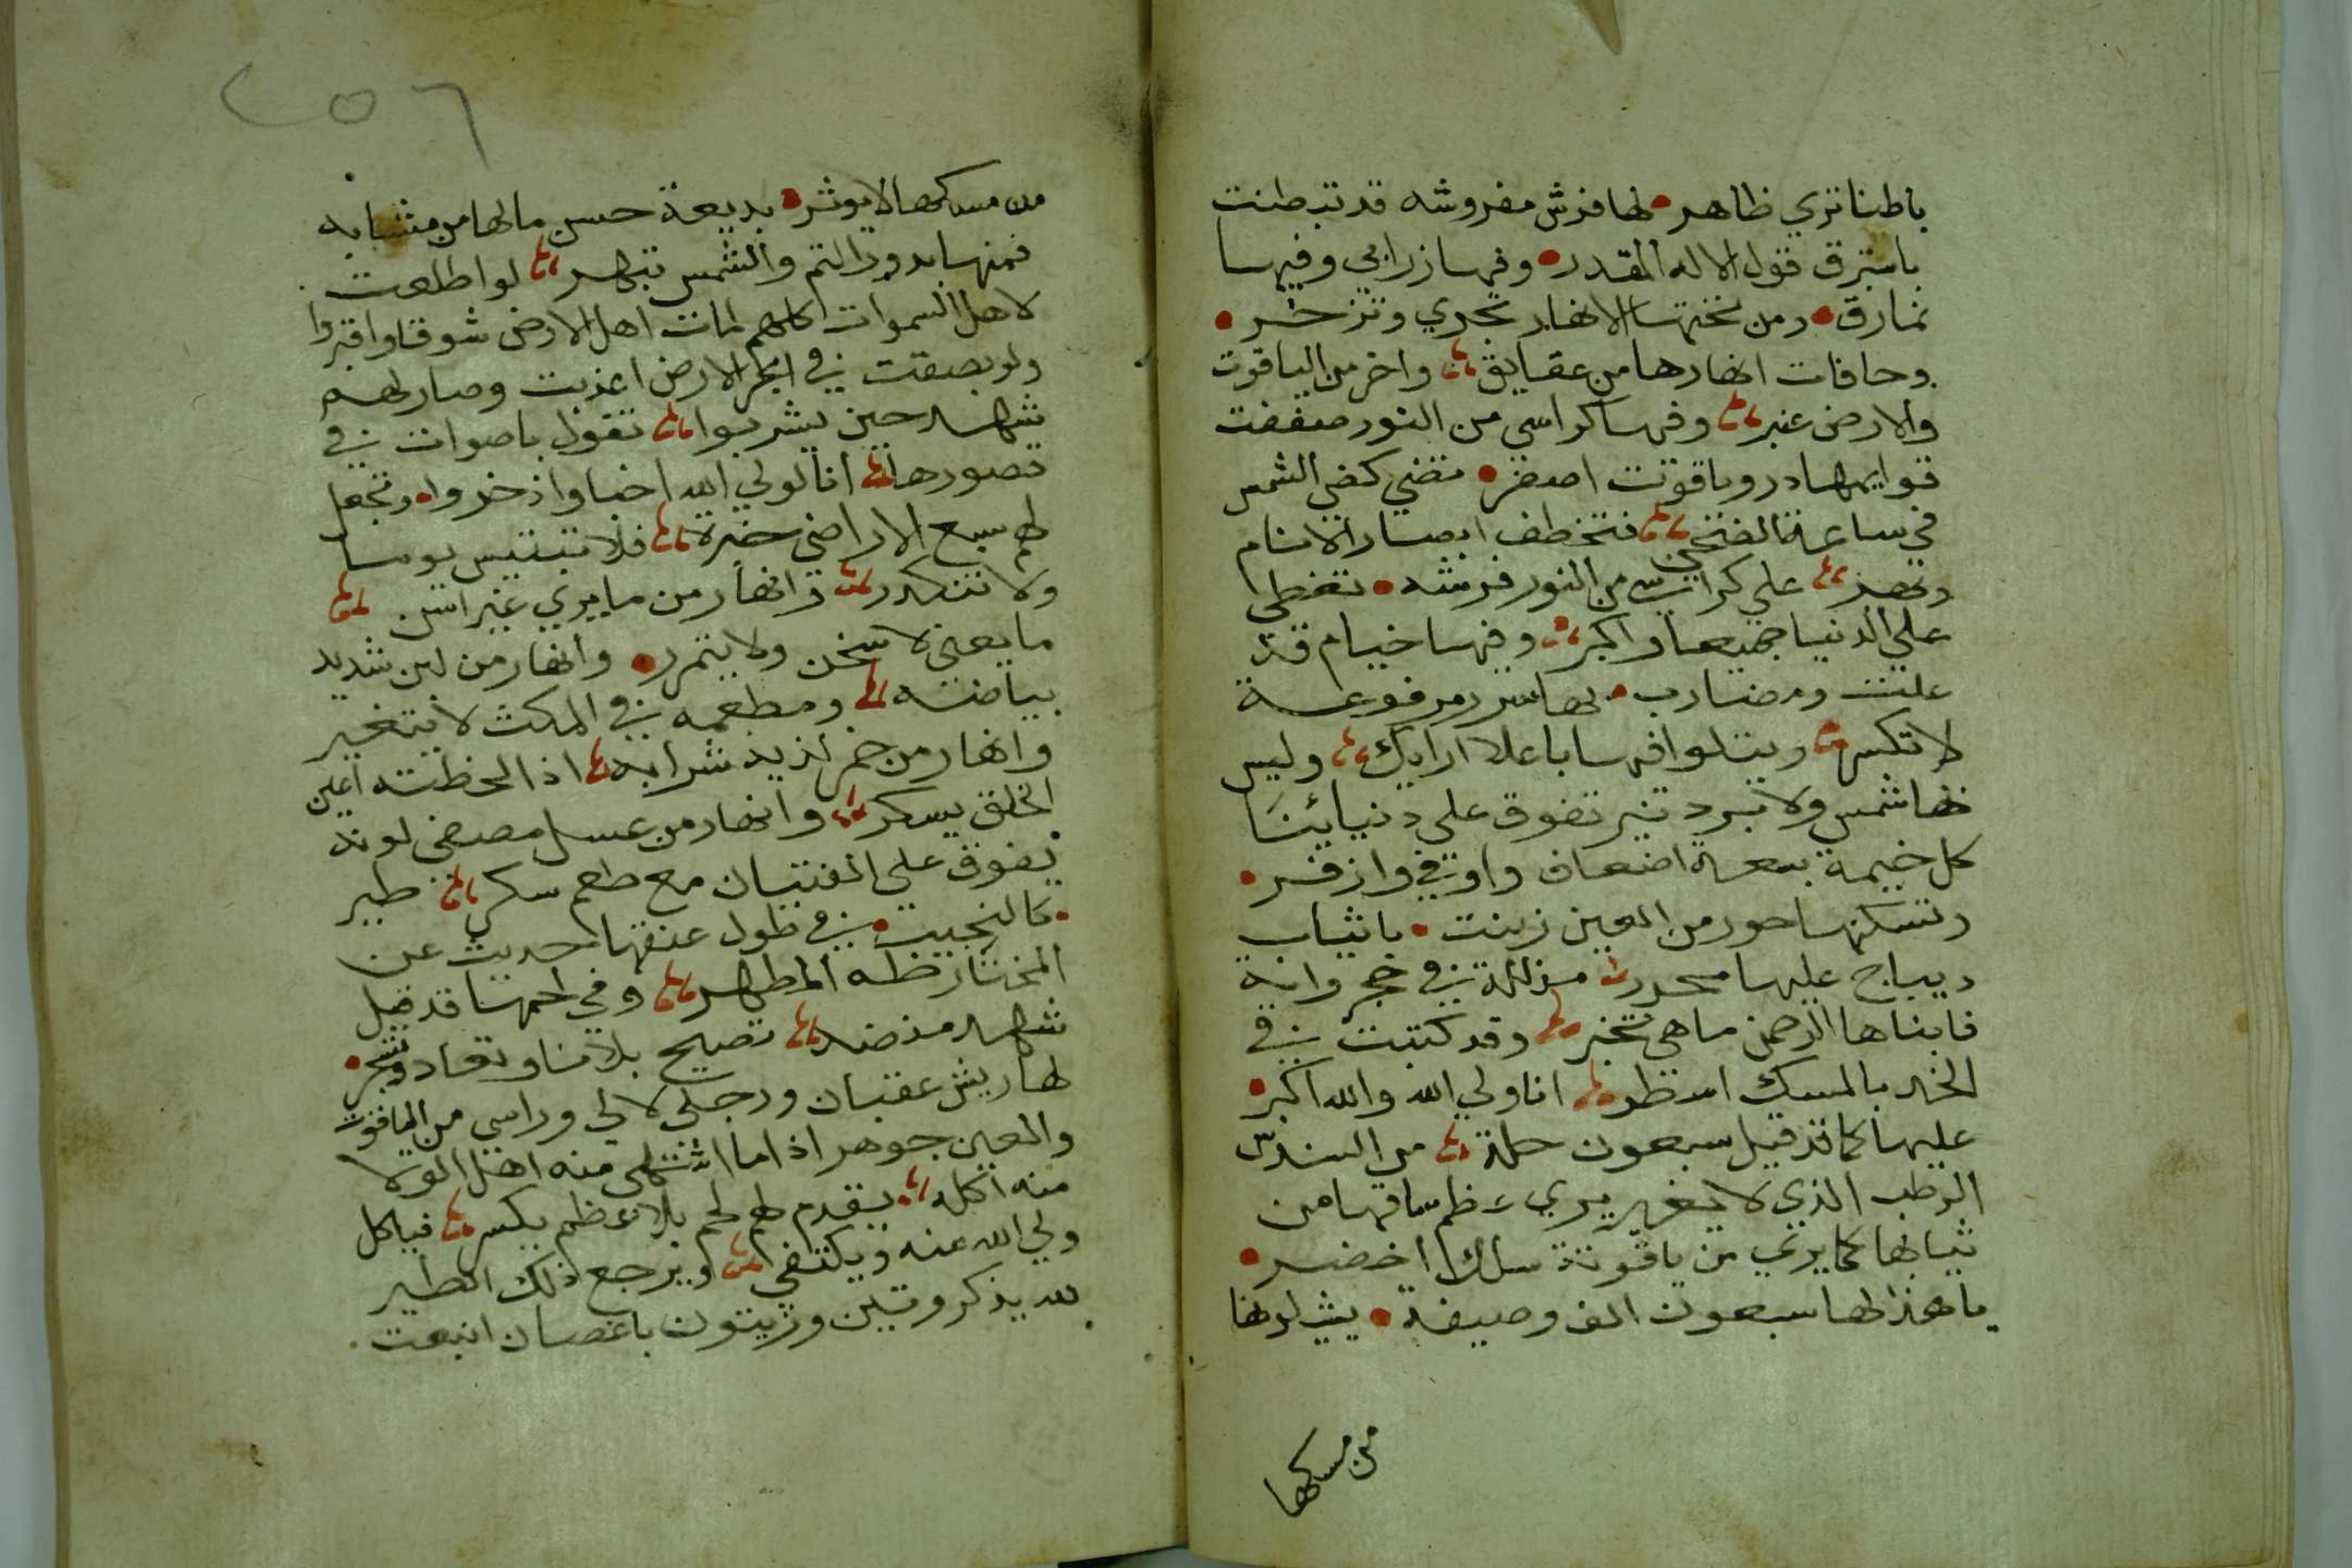 باطنا تري ظاهر • لها فرش مفروشه قد تبطنت
باستبرق قول الاله المقدر • وفيها زرابي وفيها
نمارق • ومن تحتها الانهار تجري وتزخر •
وحافات انهارها من عقايق واخر من الياقوت
والارض عنبر وفيها كراسي من النور صففت
قوايمها در وياقوت اصفر • تضي كضي الشمس
في ساعة الضحي فتخطف ابصار الانام
وتبهر علي كراسي من النور فرشه • تغطي
علي الدنيا جميعا واكبر وفيها خيام قد
علت ومضارب • بها سرر مرفوعة
لا تكسر ويتلوا فيها باعلا ارايك وليس
بها شمس ولا برد تنير تفوق علي دنيائنا
كل خيمة بسعة اضعاف واوفي وازفر •
وتسكنها حور من العين زينت • باثياب
ديباج عليها محرر مزللة في خجر وانية
فابناها الرحمن ما هي تخبر وقد كتبت في
الخد بالمسك اسطر انا ولي الله والله اكبر •
عليها كما قد قيل سبعون حلة من السندس
الرطب الذي لا يغير يري عظم ساقها من
ثيابها كما يري من ياقوتة سلك اخضر •
يا هذا لها سبعون الف وصيفة • يشيلونها
من مسكها
٢٥٦
من مسكها لا يوثر • بديعة حسن ما لها من مشابه
فمنها بدور التم والشمس تبهر لو اطلعت
لاهل السموات كلهم لمات اهل الارض شوقا واقبروا
ولو بصقت في ابحر الارض اعذبت وصار لهم
شهد حين يشربوا تقول باصوات في
قصورها انا لولي الله اخبا واذخروا • وتجعل
لهم سبع الاراضي خبزة فلا تبتيس يوما
ولا تتكدر وانهار من ما يري غير اسن
ما يعني لا سخن ولا يتمرر • وانهار من لبن شديد
بياضه ومطعمه في المكث لا يتغير
وانهار من خمر لذيذ شرابه اذا لحظته اعين
الخلق يسكر وانهار من عسل مصفي لونه
يفوق علي الفتيان مع طعم سكر طير
كالنجيب • في طول عنقها حديث عن
المختار طه المطهر وفي لحمها قد قيل
شهد منضد تصيح بلانا وتعاد وتنحر •
لها ريش عقبان ورجلي لالي وراسي من الياقوت
والعين جوهر اذا ما اشتهي منه اهل الولا
منه اكله يقدم لهم لحم بلا عظم يكسر فياكل
ولي الله عنه ويكتفي ويرجع ذلك الطير
لله يذكر وتين وزيتون باغصان اينعت